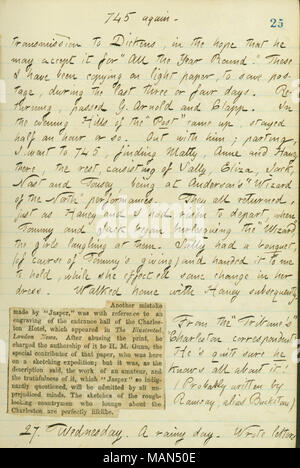 745 again.
25
transmission to Dickens, in the hope that he
may accept it for "All the Year Round." These
I have been copying on light paper, to save pos-
tage, during the last three or four days. Re-
turning, passed G. Arnold and Clapp. In
the evening Hills of the "Post" came up, stayed
half an hour or so. Out with him; parting,
I went to 745, finding Matty, Anne and Haney
there, the rest, consisting of Sally, Eliza, Jack,
Nast and Tousey being at Anderson's "Wizard
of the North" performances. They all returned,
just as Haney and I had risen to depart, when
Tommy and Jack began burlesquing the "Wizard"
the girls laughing at them. Sally had a bouquet,
(of course of Tommy's giving) and handed it to me
to hold, while she effected some change in her
dress. Walked home with Haney subsequently.
Another mistake
made by "Jasper," was with reference to an
engraving of the entrance hall of the Charles-
ton Hotel, which appeared in The Illustrated
London News. After abusing the print, he
charged the authorship of it to H. M. Gunn, the
special contributor of that paper, who was here
on a sketching expedition; but it was, as the
description said, the work of an amateur, and
the truthfulness of it, which "Jasper" so indig-
nantly questioned, will be admitted by all un-
prejudiced minds. The sketches of the rough-
looking countrymen who lounge about the
Charleston are perfectly lifelike.
From the "Tribune's"
Charleston correspondent
He's quite sure he
knows all about it!
(Probably written by
Ramsay, alias Buckstone)
27. Wednesday. A rainy day. Wrote letters
alamy
MAN50E